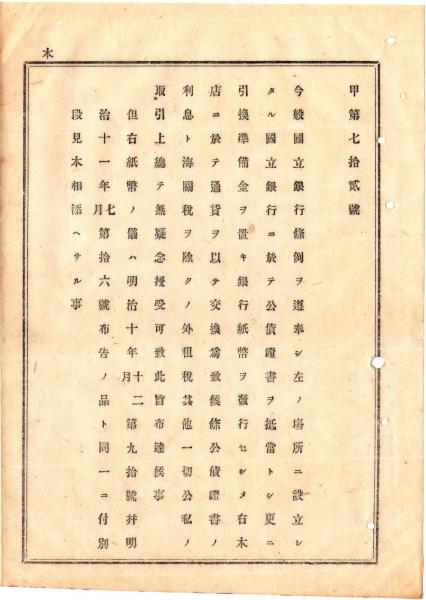 甲第七拾貳號
今般國立銀行條例ヲ遵奉シ左ノ場所ニ設立シ
タル國立銀行ニ於テ公債證書ヲ抵當トシ更ニ
引換準備金ヲ置キ銀行紙幣ヲ發行セシメ右本
店ニ於テ通貨ヲ以テ交換爲致候條公債證書ノ
利息ト海關稅ヲ除クノ外租稅其他一切公私ノ
取引上總テ無疑念授受可致此旨布達候事
但右紙幣ノ儀ハ明治十年十二月第九拾號幷明
治十一年七月第拾六號布告ノ品ト同一ニ付別
段見本相添ヘサル事
本